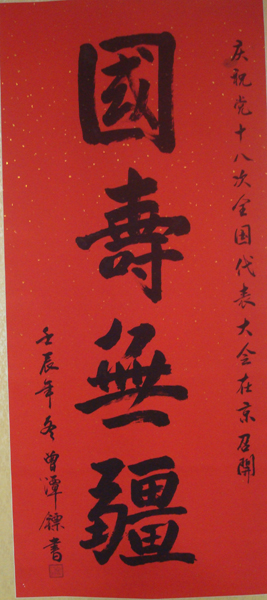 庆祝党十八次全国代表大会在京召開
國壽無疆
壬辰年冬曾潭鏢書